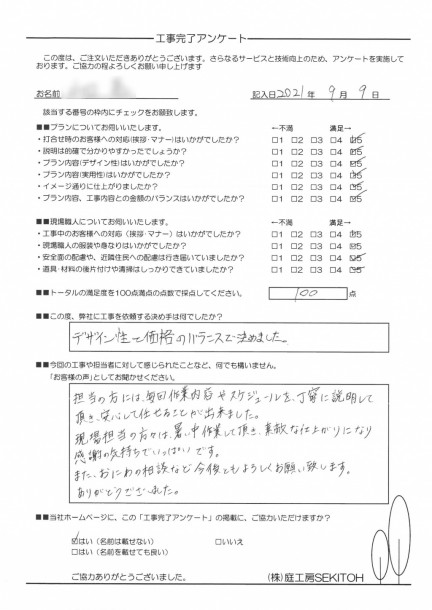 工事完了アンケート
この度は、ご注文いただきありがとうございます。さらなるサービスと技術向上のため、アンケートを実施して
おります。ご協力の程よろしくお願い申し上げます
お名前 記入日2021年 9月 9日
該当する番号の枠内にチェックをお願致します。
■■プランについてお伺いいたします。 ←不満 満足→
・打合せ時のお客様への対応(挨拶・マナー)はいかがでしたか? □1 □2 □3 □4 ☑5
・説明は的確で分かりやすかったでしょうか? □1 □2 □3 □4 ☑5
・プラン内容(デザイン性)はいかがでしたか? □1 □2 □3 □4 ☑5
・プラン内容(実用性)はいかがでしたか? □1 □2 □3 □4 ☑5
・イメージ通りに仕上がりましたか? □1 □2 □3 □4 ☑5
・プラン内容、工事内容との金額のバランスはいかがでしたか? □1 □2 □3 □4 ☑5
■■現場職人についてお伺いいたします。 ←不満 満足→
・工事中のお客様への対応(挨拶・マナー)はいかがでしたか? □1 □2 □3 □4 ☑5
・現場職人の服装や身なりはいかがでしたか? □1 □2 □3 □4 ☑5
・安全面の配慮や、近隣住民への配慮は行き届いていましたか? □1 □2 □3 □4 ☑5
・道具・材料の後片付けや清掃はしっかりできていましたか? □1 □2 □3 □4 ☑5
■■トータルの満足度を100点満点の点数で採点してください。 100 点
■■この度、弊社に工事を依頼する決め手は何でしたか?
デザイン性と価格のバランスで決めました。
■■今回の工事や担当者に対して感じられたことなど、何でも構いません。
「お客様の声」としてお聞かせください。
担当の方には、毎回作業内容やスケジュールを、丁寧に説明して
頂き、安心して任せることが出来ました。
現場担当の方々は、暑い中作業して頂き、素敵な仕上がりになり
感謝の気持ちでいっぱいです。
また、おにわの相談など今後ともよろしくお願い致します。
ありがとうございました。
■■当社ホームページに、この「工事完了アンケート」の掲載に、ご協力いただけますか?
☑はい(名前は載せない) □いいえ
□はい(名前を載せても良い)
ご協力ありがとうございました。 (株)庭工房SEKITOH